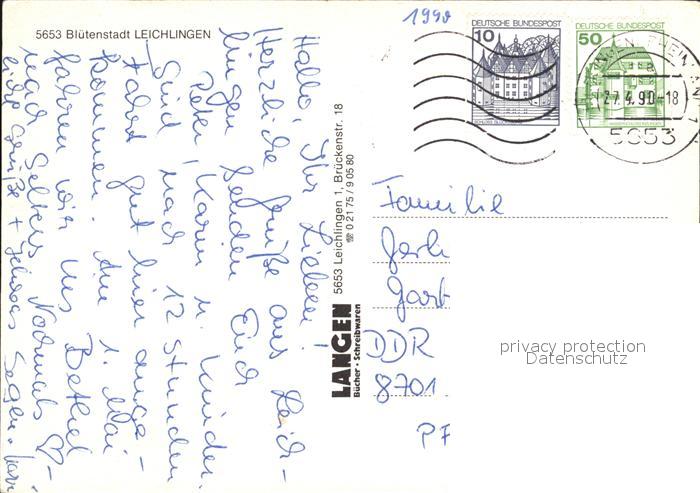 5653 Blütenstadt LEICHLINGEN
1990
DEUTSCHE BUNDESPOST
10
DEUTSCHE BUNDESPOST
50
27.4.90-18
5653
Hallo, Ihr Lieben!
Herzliche Grüße aus Leich-
lingen senden Euch
Peter, Karin u. Kinder.
Sind nach 12 Stunden
Fahrt gut hier ange-
kommen. Am 1. Mai
fahren wir uns Bethel
nach
Grüße +
LANGEN
Bücher · Schreibwaren
5653 Leichlingen 1, Brückenstr. 18
☏ 0 21 75 / 9 05 80
Familie
DDR
8701
PF
privacy protection
Datenschutz